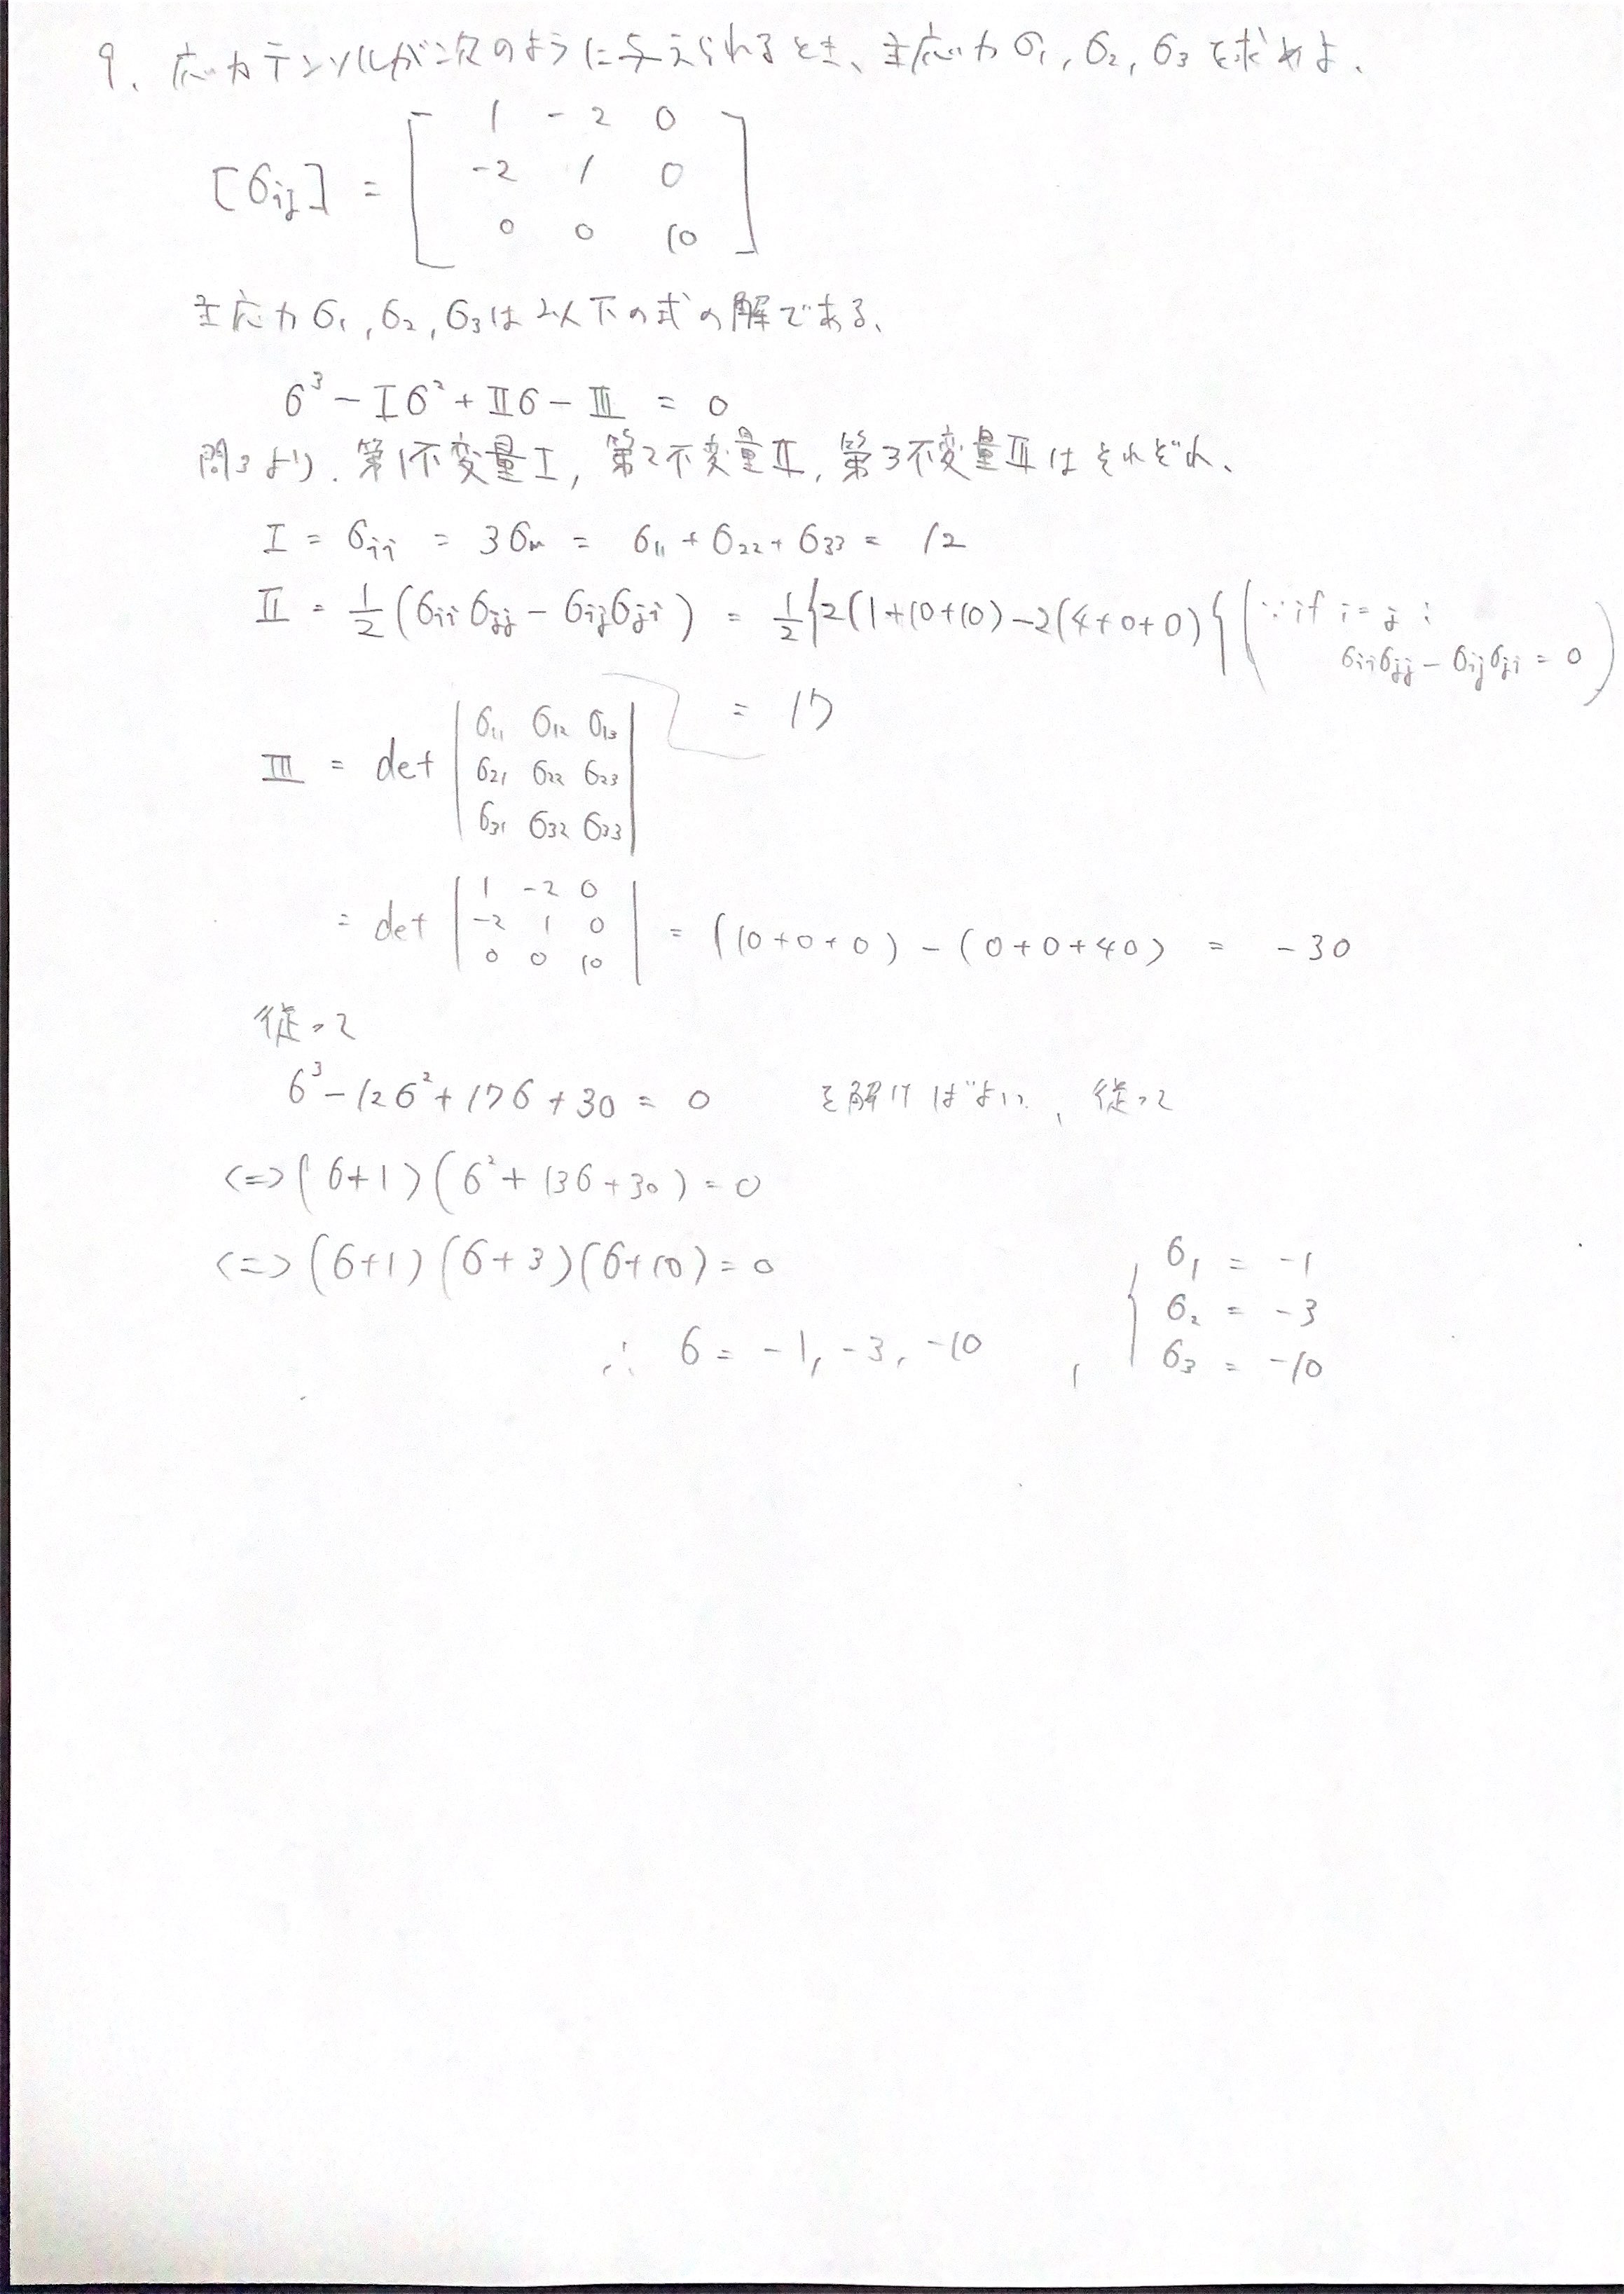 9. 応力テンソルが次のように与えられるとき、主応力σ₁, σ₂, σ₃を求めよ.
[σij] = [ 1 -2 0
-2 1 0
0 0 10 ]
主応力σ₁, σ₂, σ₃は以下の式の解である、
σ³ - Ⅰσ² + Ⅱσ - Ⅲ = 0
問3より. 第1不変量Ⅰ, 第2不変量Ⅱ, 第3不変量Ⅲはそれぞれ、
Ⅰ = σii = 3σm = σ₁₁ + σ₂₂ + σ₃₃ = 12
Ⅱ = 1/2 (σii σjj - σij σji) = 1/2 {2(1+10+10) - 2(4+0+0)} (∵ if i=j : σii σjj - σij σji = 0)
= 17
Ⅲ = det | σ₁₁ σ₁₂ σ₁₃
σ₂₁ σ₂₂ σ₂₃
σ₃₁ σ₃₂ σ₃₃ |
= det | 1 -2 0
-2 1 0
0 0 10 | = (10+0+0) - (0+0+40) = -30
従って
σ³ - 12σ² + 17σ + 30 = 0 を解けばよい, 従って
<=> (σ+1)(σ² + 13σ + 30) = 0
<=> (σ+1)(σ+3)(σ+10) = 0
∴ σ = -1, -3, -10 , { σ₁ = -1
σ₂ = -3
σ₃ = -10